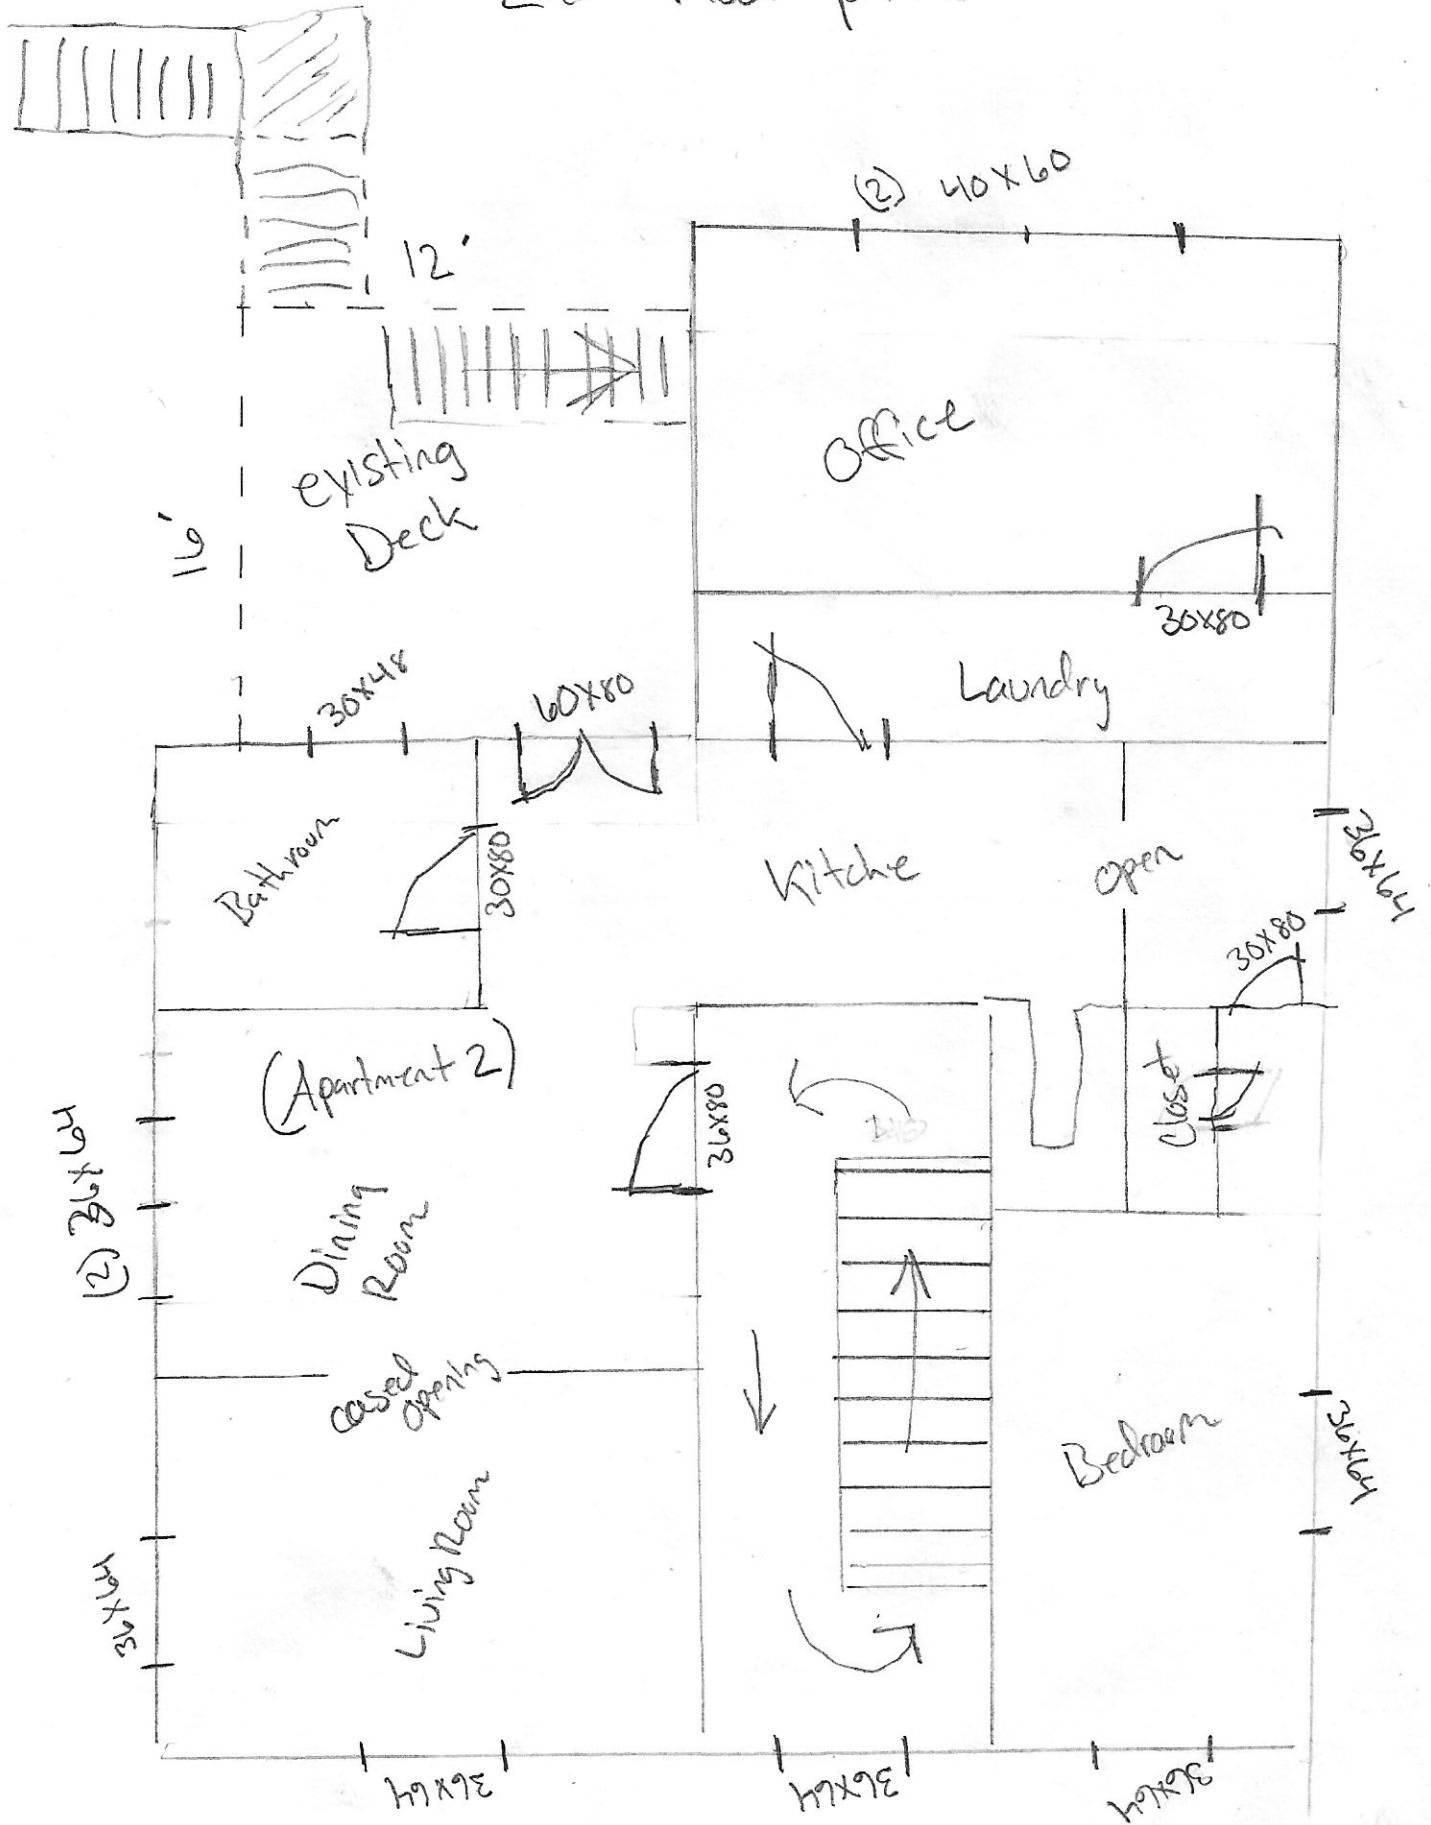 (2) 40x60
12'
Office
existing
Deck
16'
30x80
Laundry
30x48
60x80
Bathroom
30x80
Kitche
open
36x64
30x80
(Apartment 2)
36x80
Closet
(2) 36x64
Dining
Room
cased
opening
Bedroom
36x64
Living Room
36x64
36x64
36x64
36x64